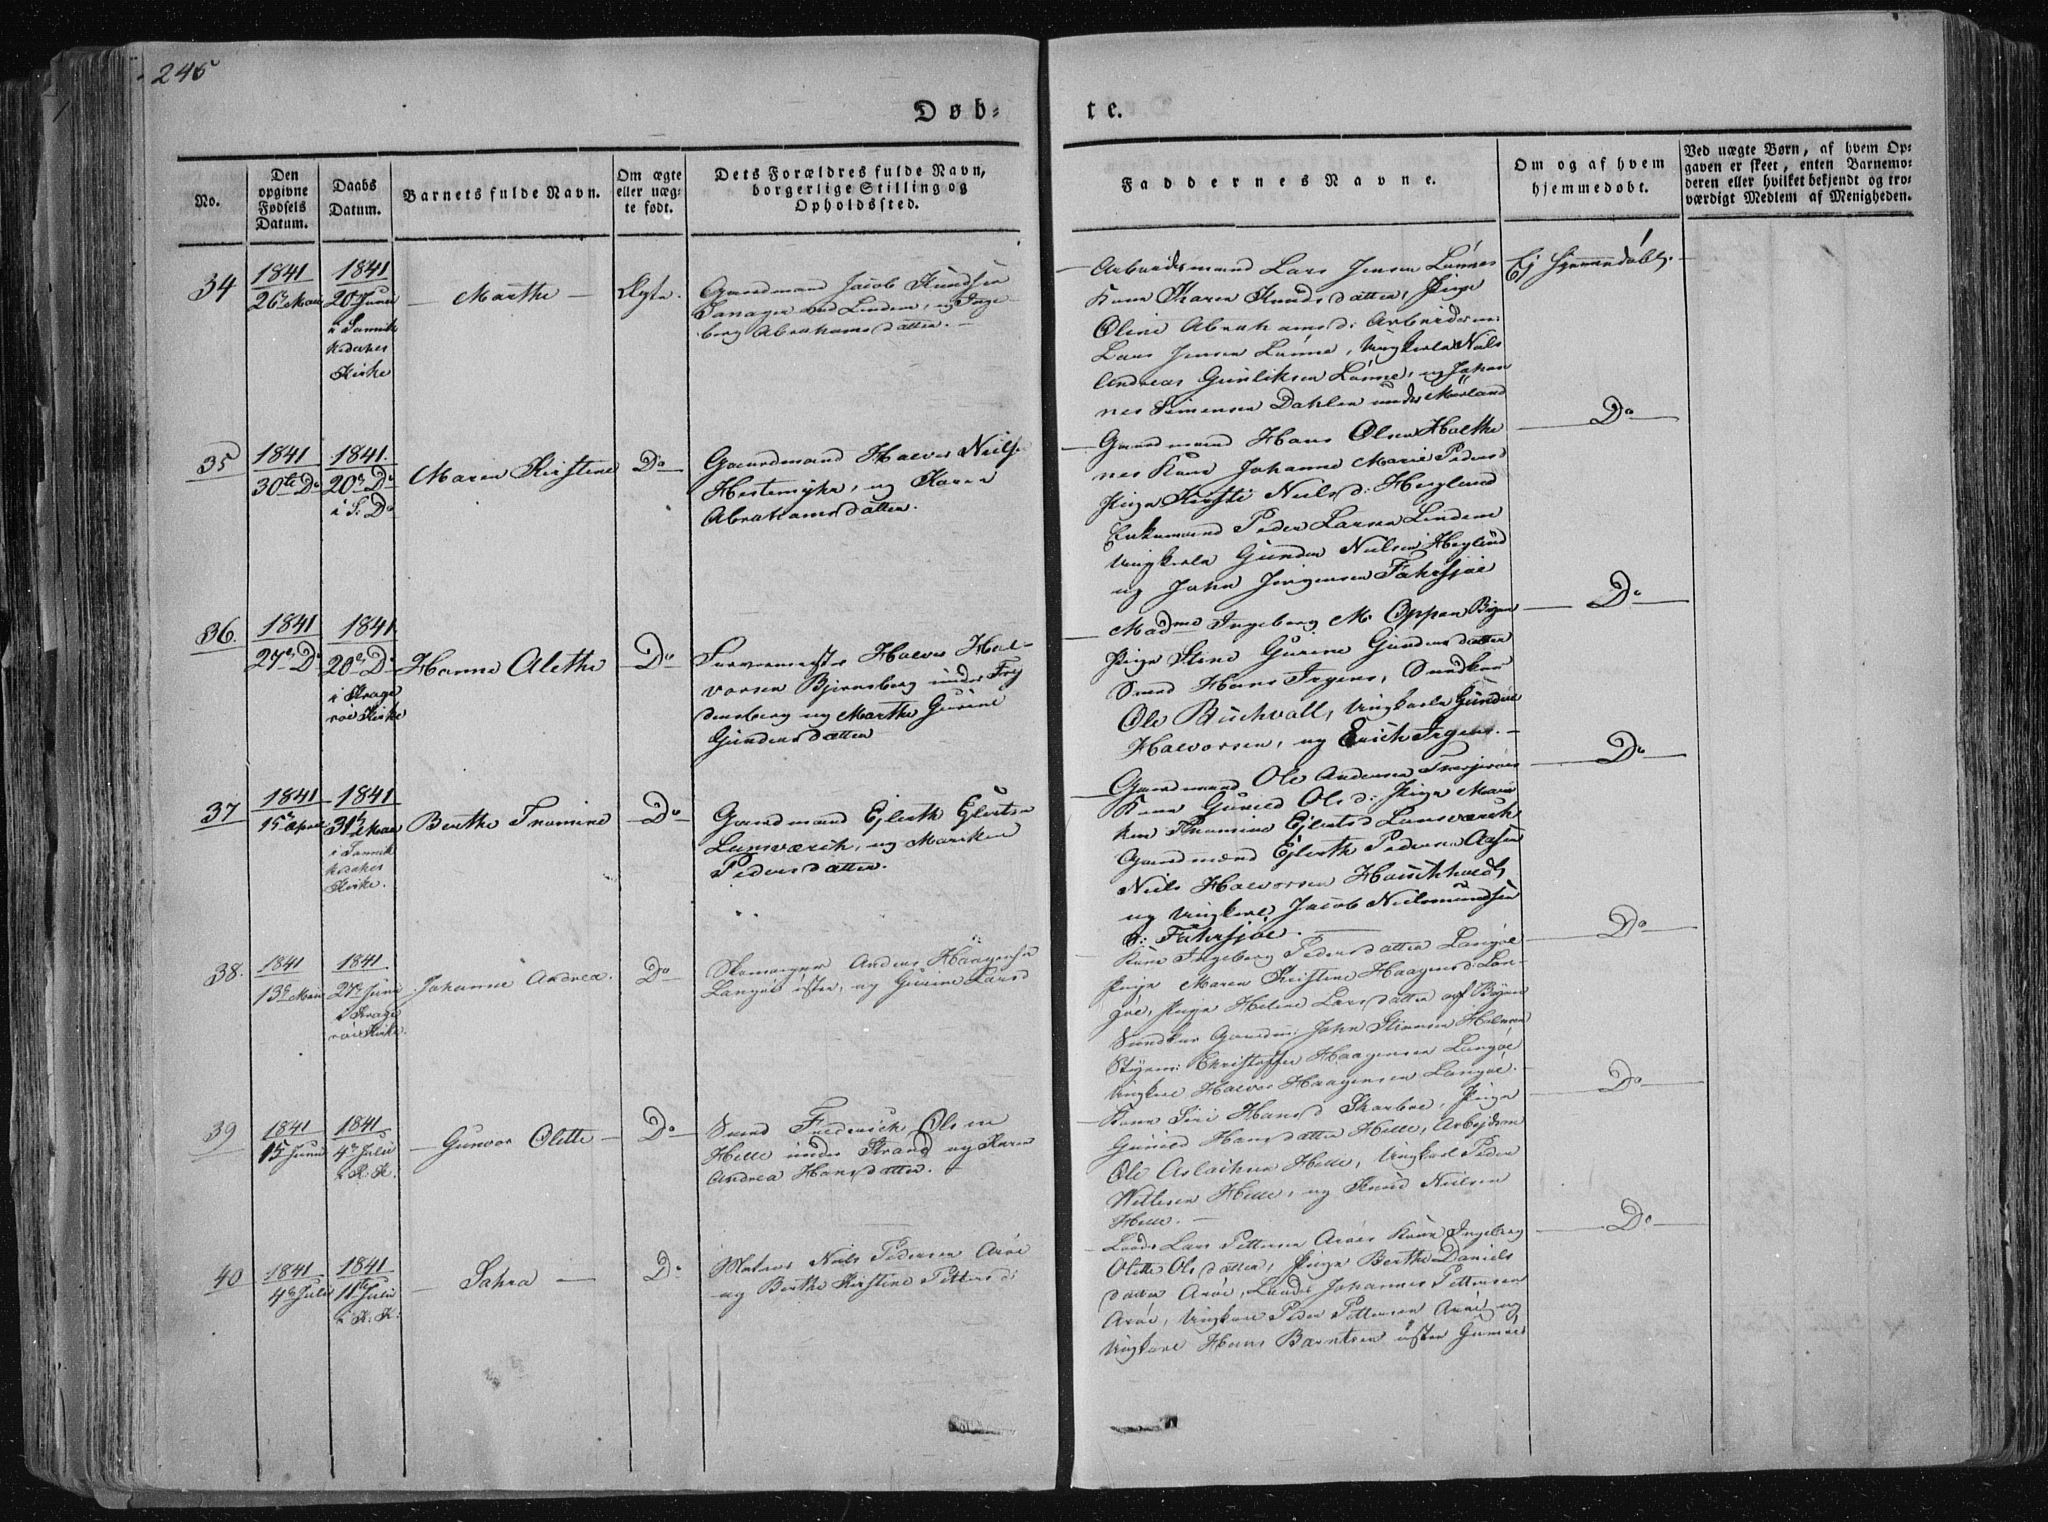 245
Døb-
te.
No.
Den opgivne Fødsels Datum.
Daabs Datum.
Barnets fulde Navn.
Om ægte eller uæg-te født.
Dets Forældres fulde Navn, borgerlige Stilling og Opholdssted.
Faddernes Navne.
Om og af hvem hjemmedøbt.
Ved uægte Børn, af hvem Op-gaven er skeet, enten Barnemo-deren eller hvilket bekjendt og tro-værdigt Medlem af Menigheden.
34
1841
26 Mai
1841
20 Juni
i Sannik
kedahls
Kirke
Marthe
Ægte.
Gaardmand Jacob Knudsen
ved Linden, og Inge
borg Abrahamsdatter.
Arbeidsmand Lars Jensen Lønnes
Kone Karen Knudsdatter, Pige
Oline Abrahamsd: Arbeidsm:
Lars Jensen Lønne, Ungkarle Niels
Andreas Gunliksen Lønne, og Johan
nes Simensen Dahlen under Mørland
Ej hjemmedøbt.
35
1841
30te Do
1841.
20de Do
i S: Do
Maren Kirstine
Do
Gaardmand Halvor Niels.
Hestemyhr, og Karen
Abrahamsdatter.
Gaardmand Hans Olsen Holthe
nes Kone Johanne Marie Pedersd
Pige Kirsti Nielsd: Heglund
Enkemand Peder Larsen Lindem
Ungkarle Gunder Nielsen Heglund
og John Jørgensen Fahrsjøe
Do
36.
1841
27de Do
1841
20de Do
i Krage
røe Kirke
Hanne Alethe
Do
Halvor Hal-
vorsen Bjørnsberg under Fry
densberg og Marthe Gurine
Gundersdatter
Madme Ingeborg M. Oppen Byen
Pige Stine Gurine Gundersdatter
Smed Hans Irgens,
Ole Buchvall, Ungkarle Gunder
Halvorsen, og Erich Irgens.
Do
37
1841
15de April
1841
31te Mai
i Sannik
kedahls
Kirke.
Berthe Tromine
Do
Gaardmand Ejlerth Ejlertsen
Lunsværck, og Mariken
Pedersdatter.
Gaardmand Ole Andersen
Kone Guned Olsd: Pige Mari
ken Thomine Ejlertsd Lunsværck
Gaardmænd Ejlerth Pedersen
Niels Halvorsen
og Ungkarl Jacob Nielsmundsen
Fahrsjøe.
Do
38.
1841
13de Mai
1841
27de Juni
i Krage
røe Kirke.
Johanne Andrea.
Do
Anders Haagensen
Langøe østen, og Gurine Larsd
Kone Ingeborg Pedersdatter Langøe
Pige Maren Kirstine Haagensd: Lan-
gøe, Pige Helene Larsdatter af Byen
John Stiansen
Christoffer Haagensen Langøe
Ungkarl Halvor Haagensen Langøe.
Do
39
1841
15 Juni
1841
4de Julii
i K. K.
Gunvor Olette
Do
Smed Frederick Olsen
Helle under Strand og Karen
Andrea Hansdatter.
Kone Siri Hansd Skarboe, Pige
Guned Hansdatter Helle, Arbejdsm
Ole Aslachsen Helle, Ungkarl Peder
Wettesen Helle, og Knud Nielsen
Helle.
Do
40
1841
4de Julii
1841
11te Julii
i K. K:
Sahra
Do
Matros Niels Pedersen Arøe
og Berthe Kirstine Pettersd:
Lods Lars Pettersen Arøes Kone Ingeborg
Olette Olsdatter, Pige Berthe Daniels
datter Arøe, Lods Johannes Pettersen
Arøe, Ungkarl Peder Pettersen Arøe og
Ungkarl Hans Barntsen østen Gumøe
Do